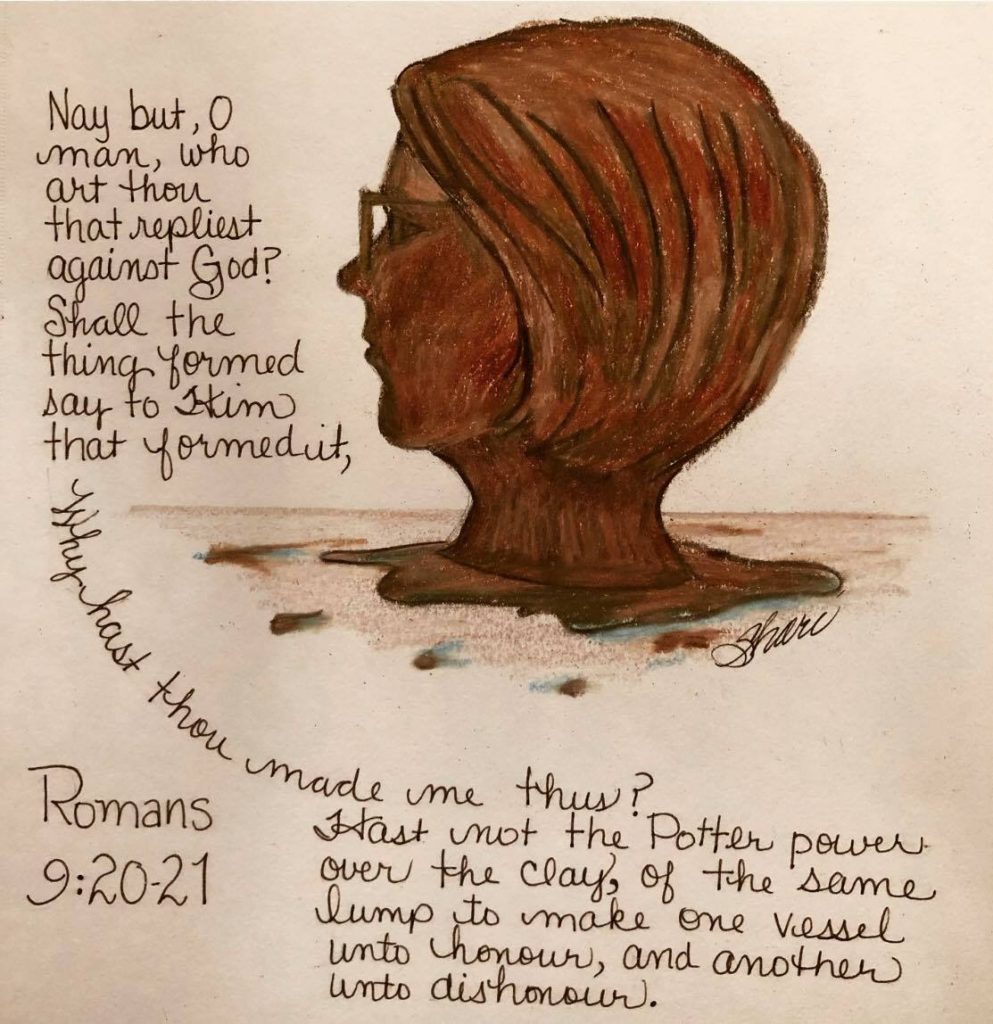 Nay but, O
man, who
art thou
that repliest
against God?
Shall the
thing formed
say to Him
that formed it,
Why hast thou made me thus?
Hast not the Potter power
over the clay, of the same
lump to make one vessel
unto honour, and another
unto dishonour.
Romans
9:20-21
Shari